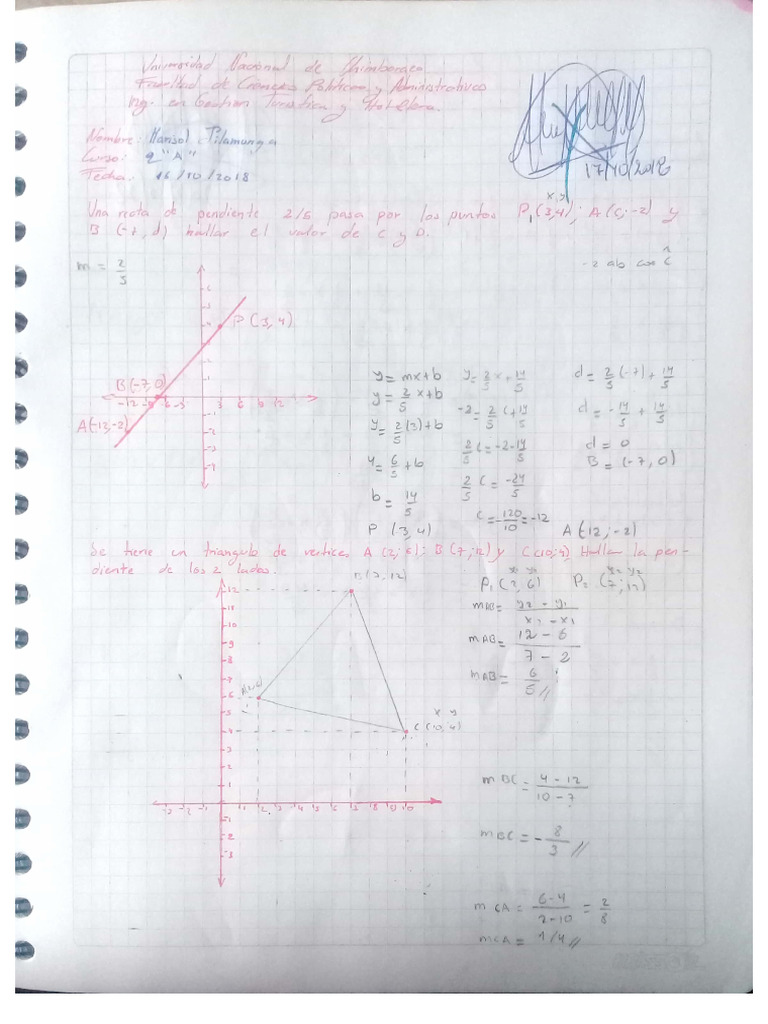 Universidad Nacional de Chimborazo
Facultad de Ciencias Políticas y Administrativas
Ing. en Gestion Turística y Hotelera.
Nombre: Marisol Pilamunga
Curso: 2 "A"
Fecha: 16/10/2018
17/10/2018
x, y
Una recta de pendiente 2/5 pasa por los puntos P₁(3,4); A(C;-2) y
B (-7, d) hallar el valor de C y D.
m = 2/5
-2 ab cos Ĉ
P(3,4)
B(-7,0)
A(-12,-2)
-12 -9 -6 -3 3 6 9 12
y = mx+b
y = 2/5 x+b
y = 2/5 (3)+b
4 = 6/5 +b
b = 14/5
P (3,4)
y = 2/5 x + 14/5
-2 = 2/5 C + 14/5
2/5 C = -2 - 14/5
2/5 C = -24/5
C = -120/10 = -12
d = 2/5 (-7) + 14/5
d = -14/5 + 14/5
d = 0
B = (-7,0)
A(12;-2)
Se tiene un triangulo de vertices A (2;6); B(7;12) y C(10;4) Hallar la pen-
diente de los 2 lados.
B(7,12)
C (10,4)
x y
12
11
10
9
8
7
6
5
4
-3 -2 -1 1 2 3 4 5 6 7 8 9 10
-1
-2
-3
x₁ y₁ x₂ y₂
P₁(2,6) P₂ (7;12)
y₂ - y₁
x₂ - x₁
mAB = 12 - 6 / 7 - 2
mAB = 6/5 //
m BC = 4 - 12 / 10 - 7
m BC = - 8/3 //
m CA = 6-4 / 2-10 = 2/8
mCA = 1/4 //